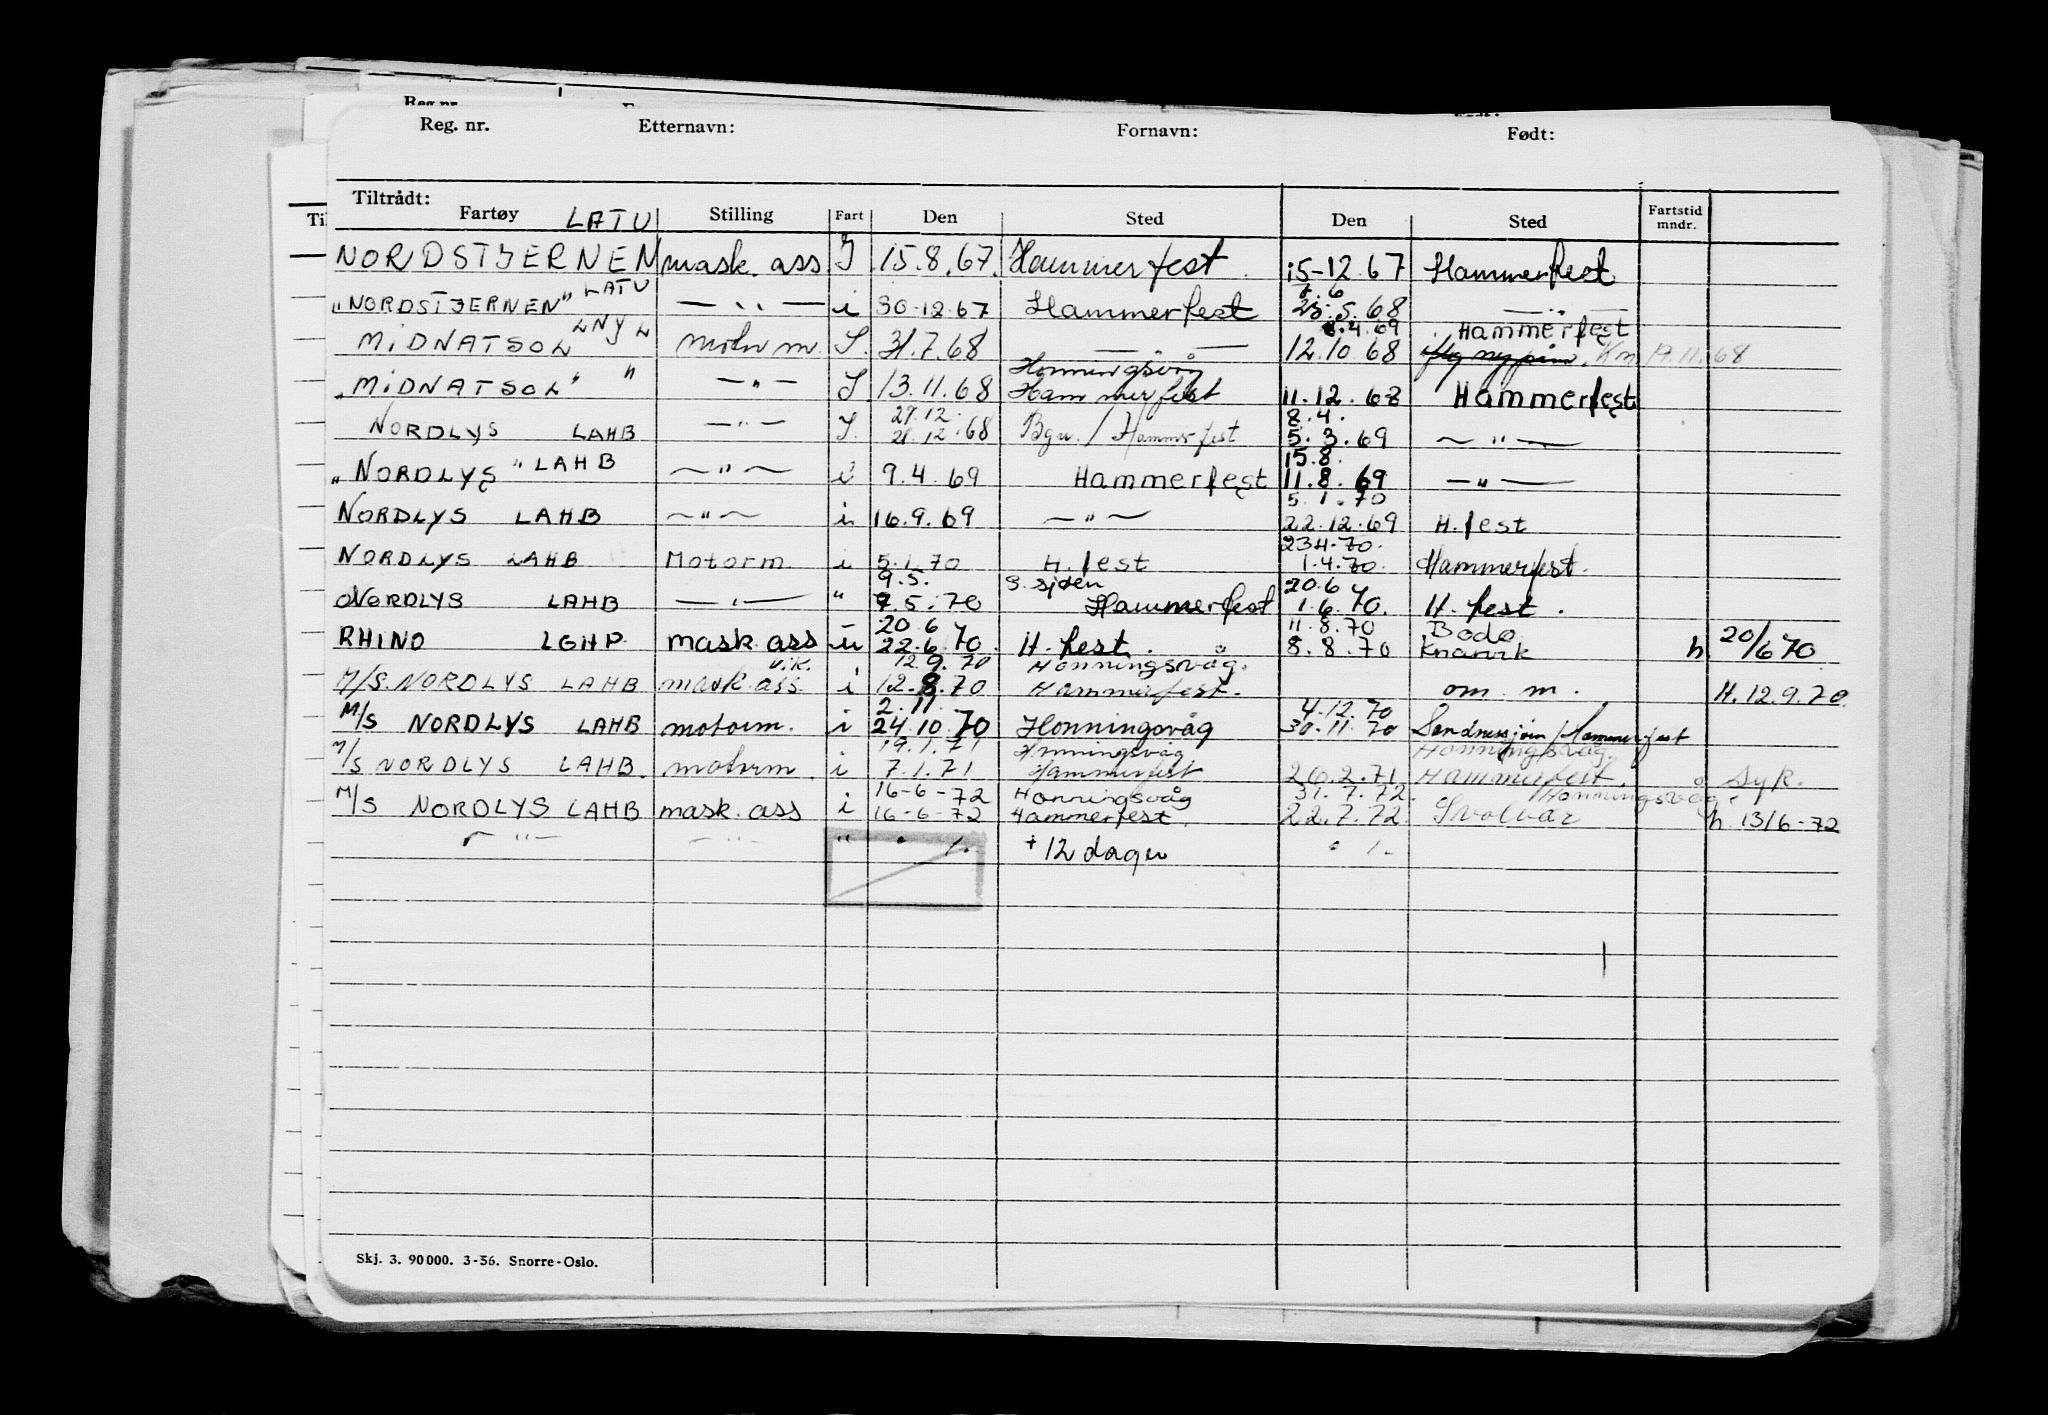 Reg. nr. Etternavn: Fornavn: Født:
Tiltrådt:
Fartøy Stilling Fart Den Sted Den Sted Fartstid mndr.
LATU
NORDSTJERNEN mask. ass. I 15.8.67. Hammerfest 15-12.67 Hammerfest
LATU 6
"NORDSTJERNEN" — " — i 30.12.67 Hammerfest 23.5.68 — " —
LNJL 8.4.69 Hammerfest
MIDNATSOL motor m. I. 31.7.68 — " — 12.10.68 Km 19.11.68
Honningsvåg
"MIDNATSOL" " — " — I 13.11.68 Hammerfest 11.12.68 Hammerfest
27.12. 8.4.
NORDLYS LAHB — " — I. 21.12.68 Bgn. / Hammerfest 5.3.69 — " —
15.8.
"NORDLYS" LAHB — " — i 9.4.69 Hammerfest 11.8.69 — " —
5.1.70
NORDLYS LAHB — " — i. 16.9.69 — " — 22.12.69 H.fest
23.4.70.
NORDLYS LAHB Motorm. i 5.1.70 H.fest 1.4.70. Hammerfest.
9.5. S.sjøen 20.6
NORDLYS LAHB — " — " 7.5.70 Hammerfest 1.6.70. H.fest.
20.6 11.8.70 Bodø
RHINO LGHP. mask. ass u 22.6.70. H.fest. 8.8.70 Knarvik h 20/6 70
vik. 12.9.70 Honningsvåg.
M/S. NORDLYS LAHB mask. ass. i 12.8.70 Hammerfest. om. m. H. 12.9.70
2.11. 4.12.70
M/S NORDLYS LAHB motorm. i 24.10.70 Honningsvåg 30.11.70 Sandnessjøen/Hammerfest
19.1.71 Honningsvåg Honningsvåg.
M/S NORDLYS LAHB. motorm. i 7.1.71 Hammerfest 26.2.71 Hammerfest. Syk.
16-6-72 Honningsvåg 31.7.72. /Honningsvåg.
M/S NORDLYS LAHB mask. ass i 16-6-72 Hammerfest. 22.7.72. Svolvær h. 13/6-72
— " — — " — " " /. + 12 dager " /.
Skj. 3. 90000. 3-56. Snorre-Oslo.